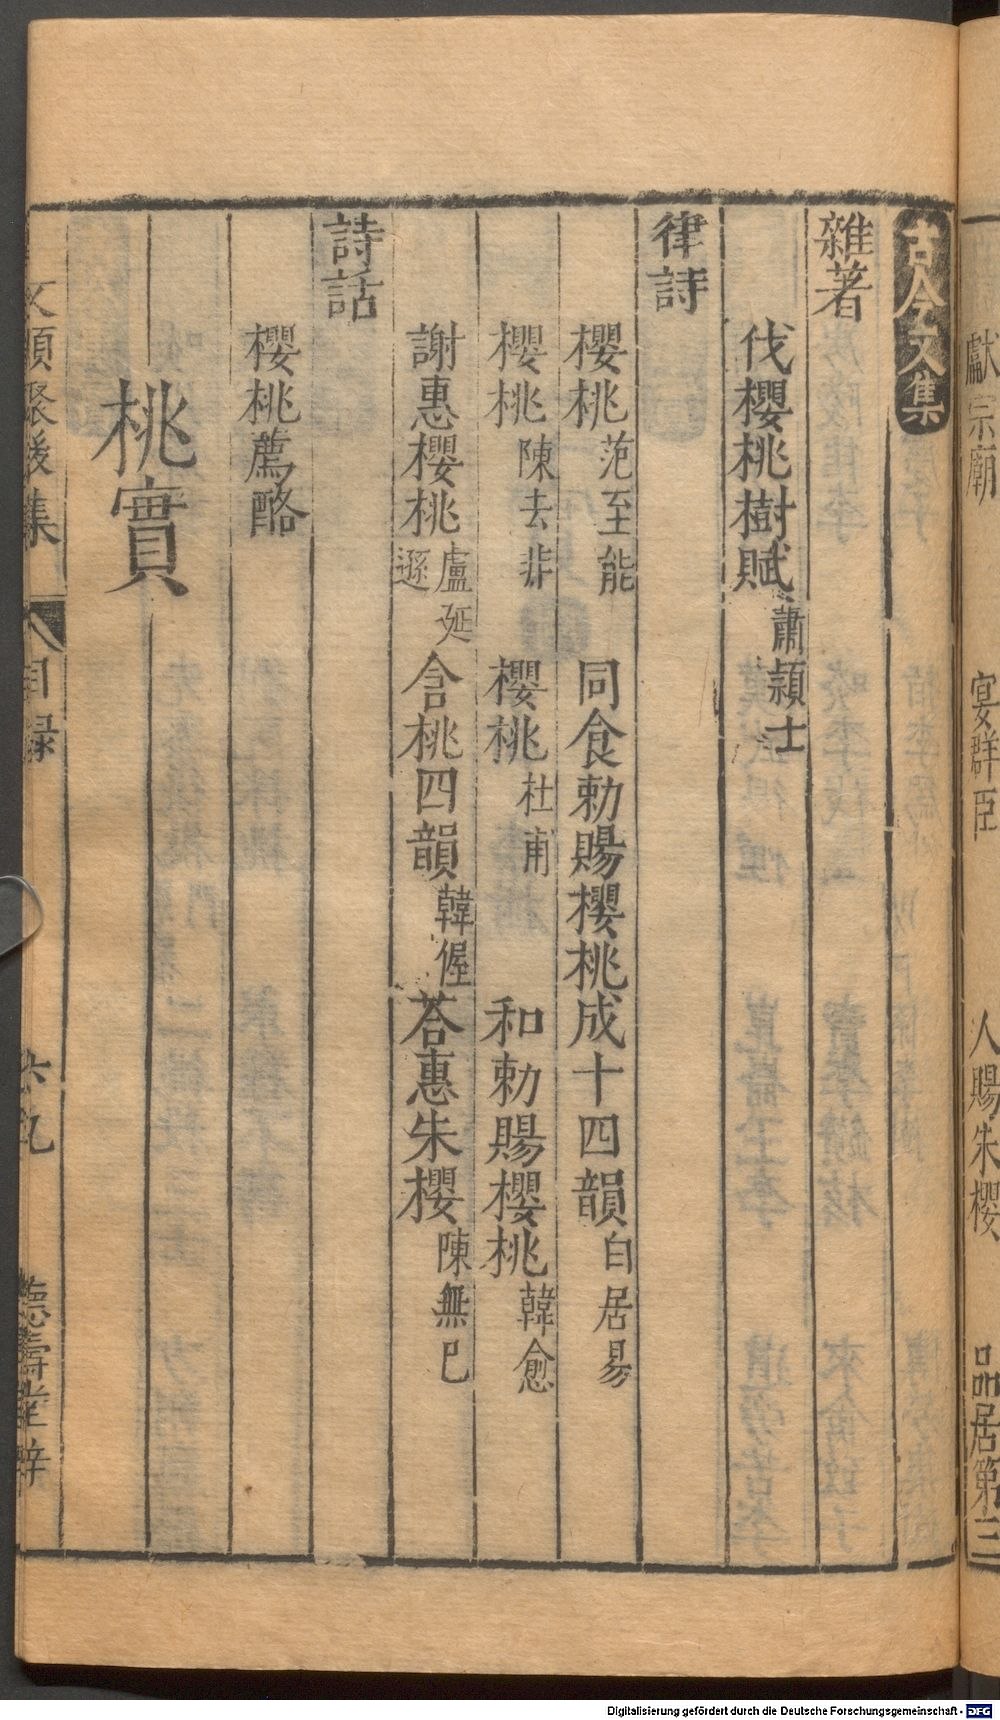 獻宗廟 宴群臣 人賜朱櫻 品居第三
古今文集
雜著
伐櫻桃樹賦 蕭頴士
律詩
櫻桃 范至能 同食勅賜櫻桃成十四韻 白居易
櫻桃 陳去非 櫻桃 杜甫 和勅賜櫻桃 韓愈
謝惠櫻桃 盧延遜 含桃四韻 韓偓 荅惠朱櫻 陳無已
詩話
櫻桃薦酪
桃實
文類聚後集 目録 六九 德壽堂梓
Digitalisierung gefördert durch die Deutsche Forschungsgemeinschaft - DFG